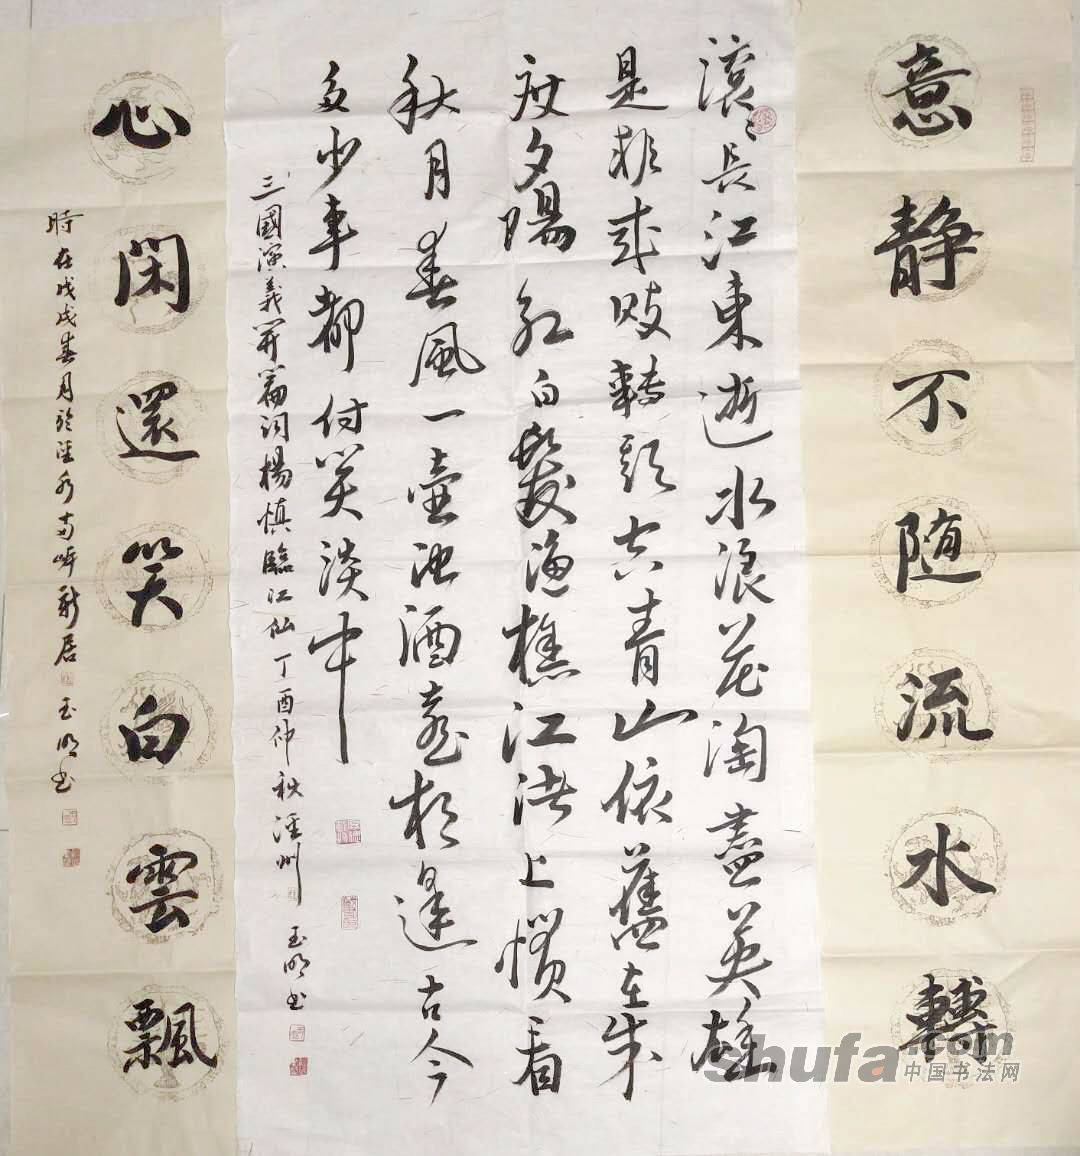 意静不随流水轉
滚〻長江東逝水浪花淘盡英雄
是非成敗轉頭空青山依舊在幾
度夕陽紅白髮漁樵江渚上慣看
秋月春風一壺濁酒喜相逢古今
多少事都付笑談中
三國演義開篇詞楊慎臨江仙丁酉仲秋涇州玉明书
心閑還笑白雲飄
時在戊戌春月於涇水南岸新居玉明书
shufa.com
中国书法网